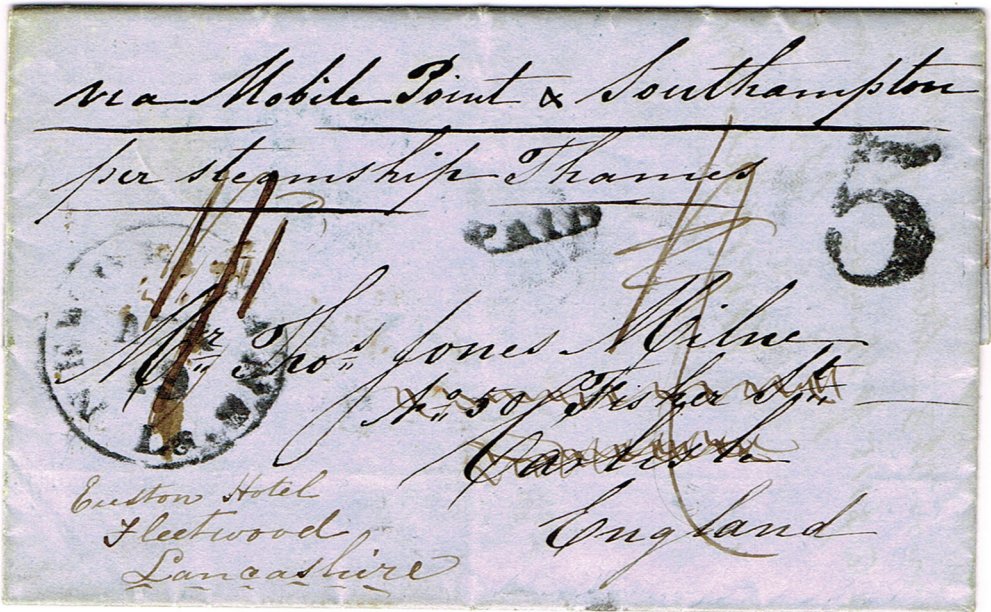 via Mobile Point & Southampton
per steamship Thames
PAID
5
NEW ORLEANS
LA.
Mr. Thos. Jones Milne
No. 50 Fisher St.
Carlisle
England
Euston Hotel
Fleetwood
Lancashire